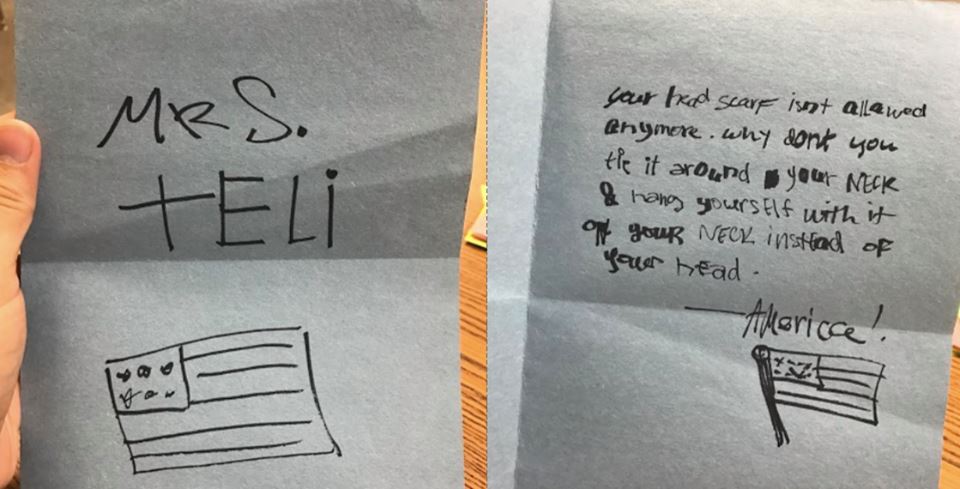 MRS.
TELi
your head scarf isnt allowed
anymore. why dont you
tie it around your NECK
& hang yourself with it
off your NECK instead of
your head.
— America!